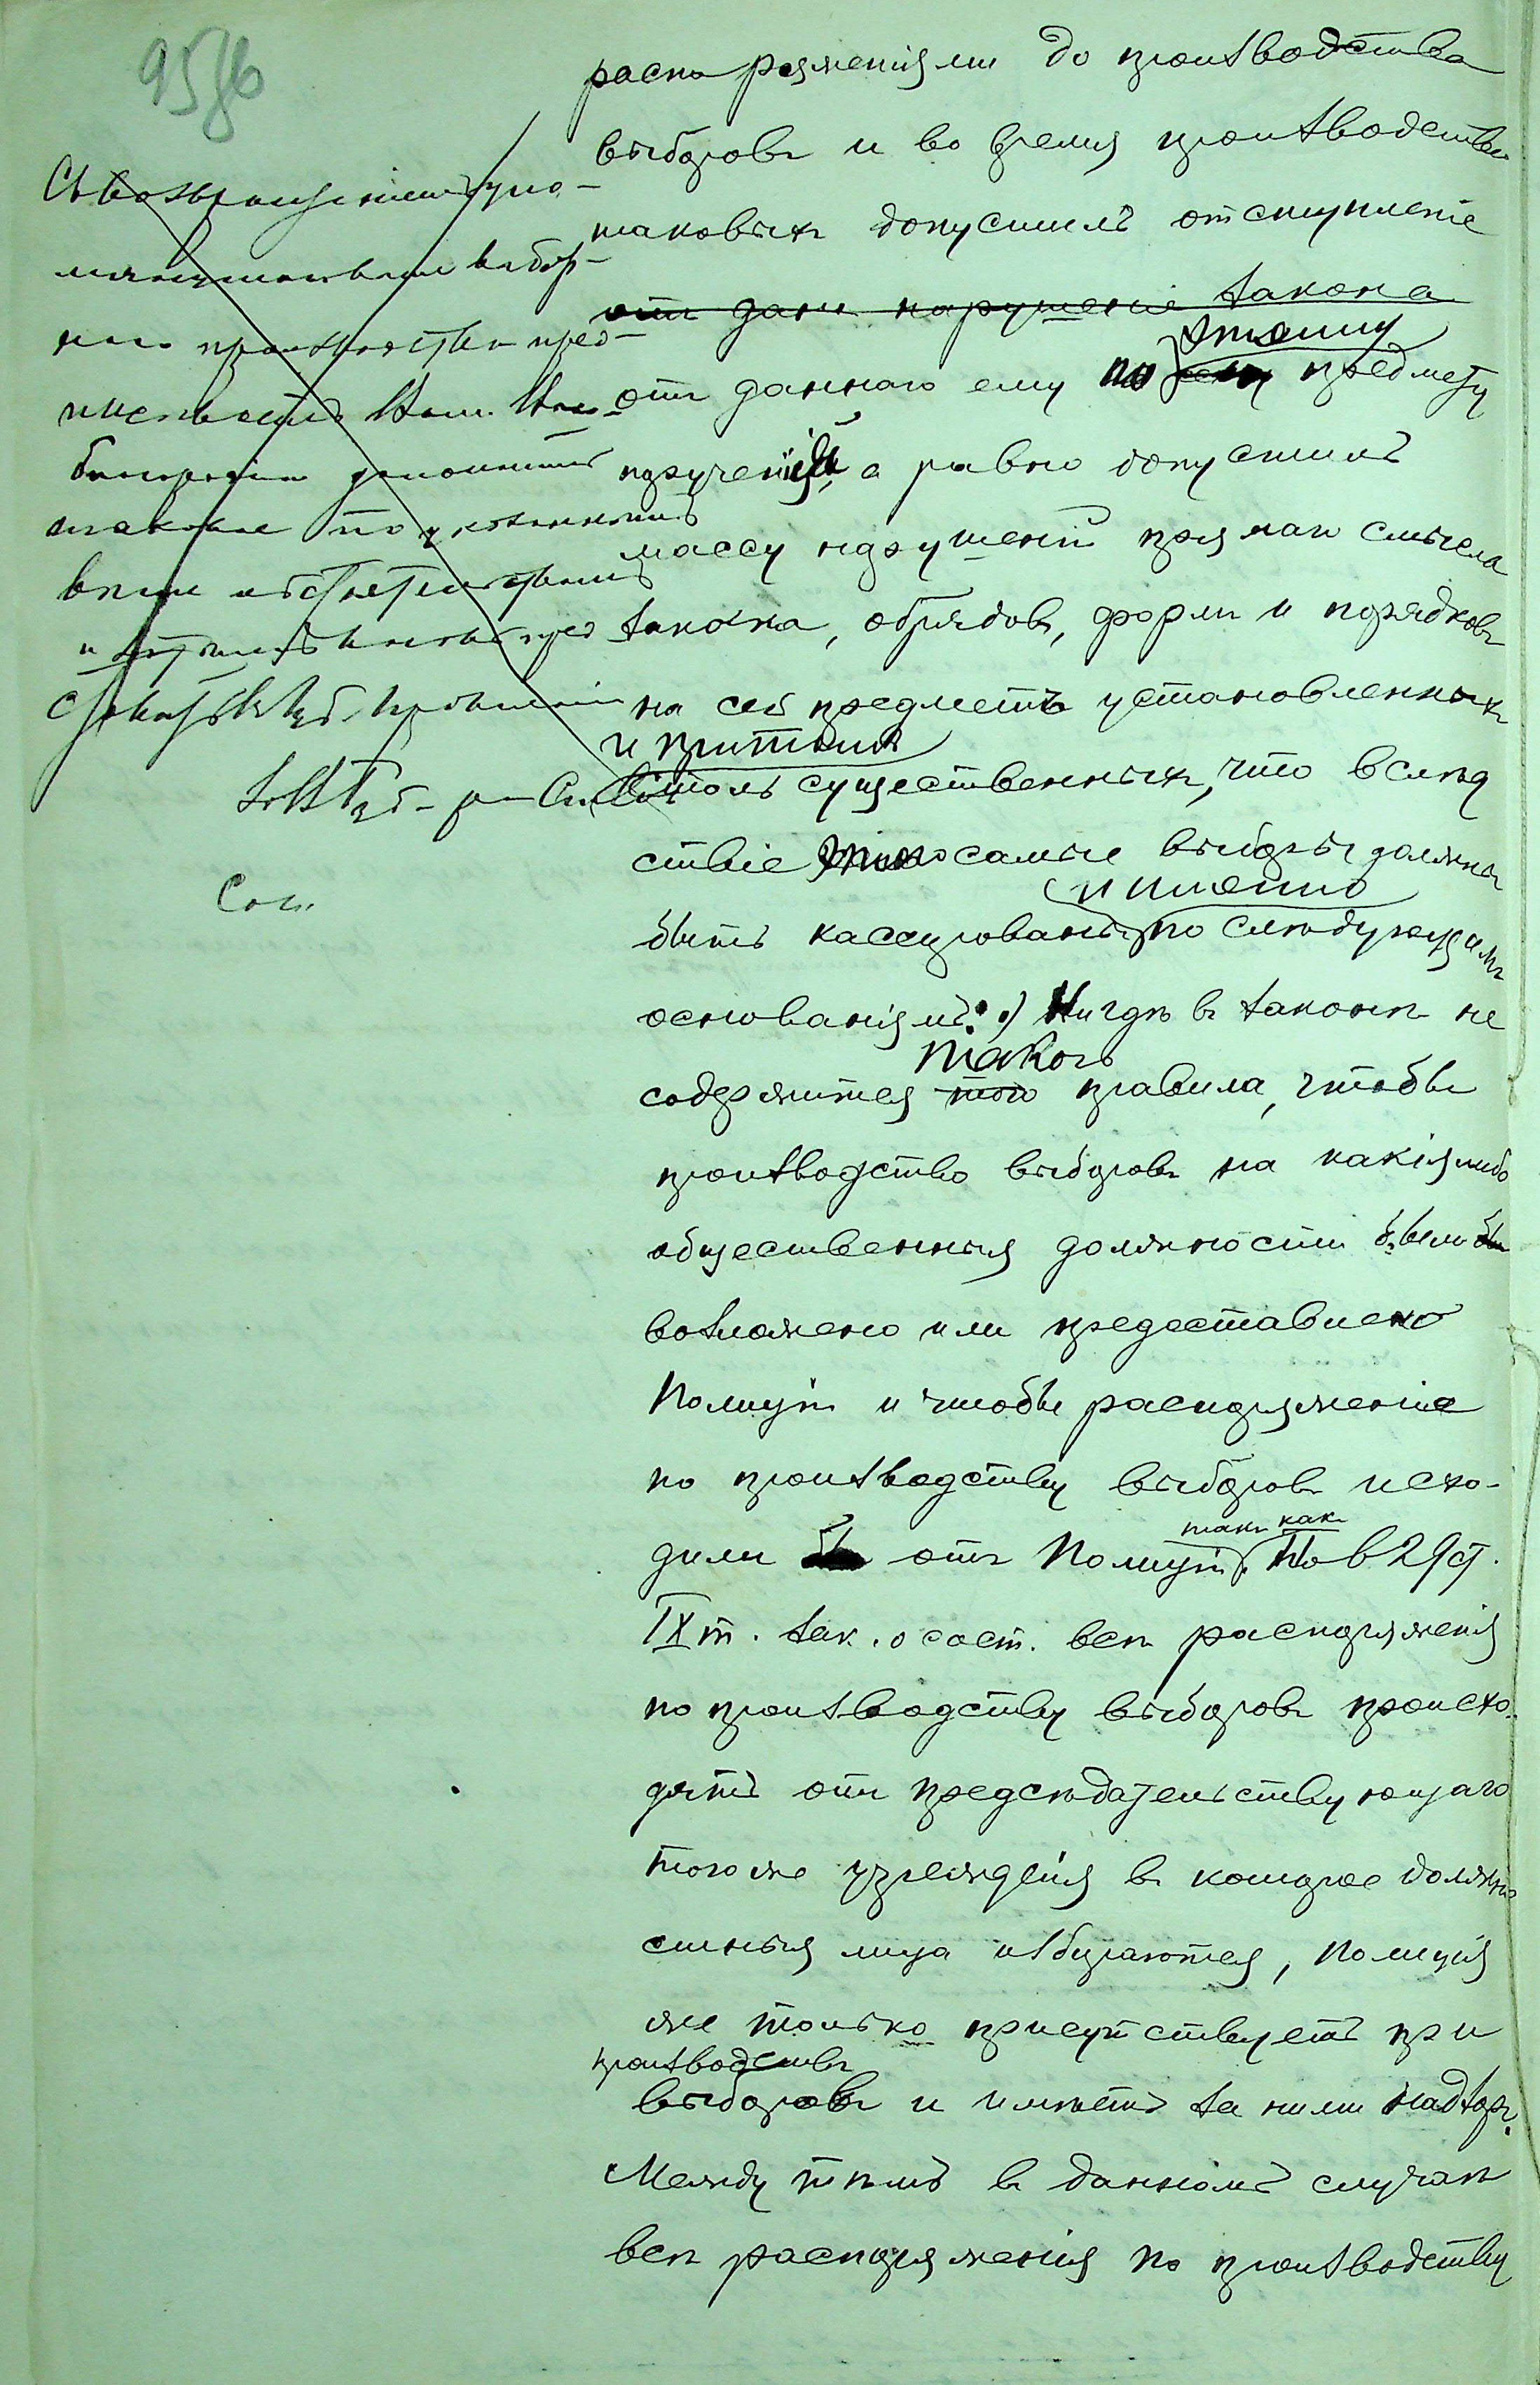 95об
распоряженіями до производства
выборовъ и во время производства
таковыхъ допустилъ отступленіе
отъ данн нарушеніе закона
этому
отъ даннаго ему по сему предмету
порученія, а равно допустилъ
массу нарушеній прямаго смысла
закона, обрядовъ, формъ и порядковъ
на сей предметъ установленныхъ
и притомъ
столь существенныхъ, что вслѣд
ствіе этого самые выборы должны
и именно
быть кассированы по слѣдующимъ
основаніямъ: Нигдѣ въ законѣ не
такого
содержится того правила, чтобы
производство выборовъ на какія либо
общественныя должности было бы
возложено или предоставлено
Полиціи и чтобы распоряженіе
по производству выборовъ исхо-
такъ какъ
дили бы отъ Полиціи. По в 29 ст.
IX т. зак. о сост. всѣ распоряженія
по производству выборовъ происхо-
дятъ отъ предсѣдательствующаго
того же учрежденія въ которое должно
стныя лица избираются, Полиція
же только присутствуетъ при
производствѣ
выборовъ и имѣетъ за ними надзоръ.
Между тѣмъ въ данномъ случаѣ
всѣ распоряженія по производству
Съ возвращеніемъ упо-
мянутаго выбор-
наго производства пред-